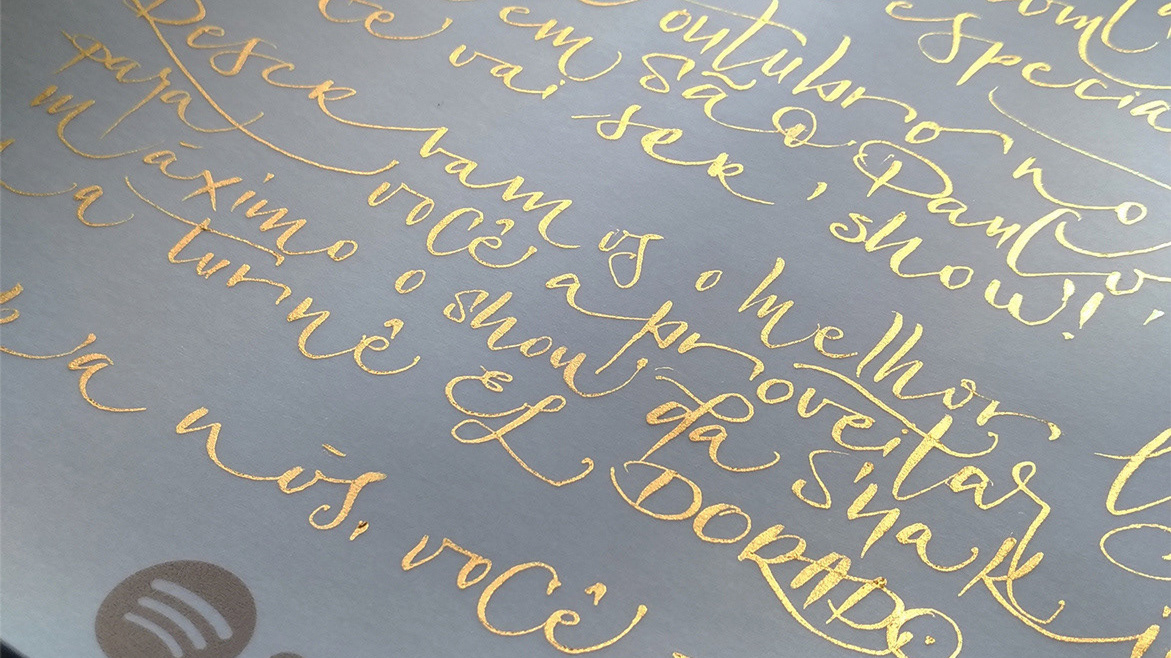 especial
outubro no
em São Paulo,
cê vai ser, show!
Reservamos o melhor
para você aproveitar
máximo o show da Shak
a turnê EL DORADO
a nós, você